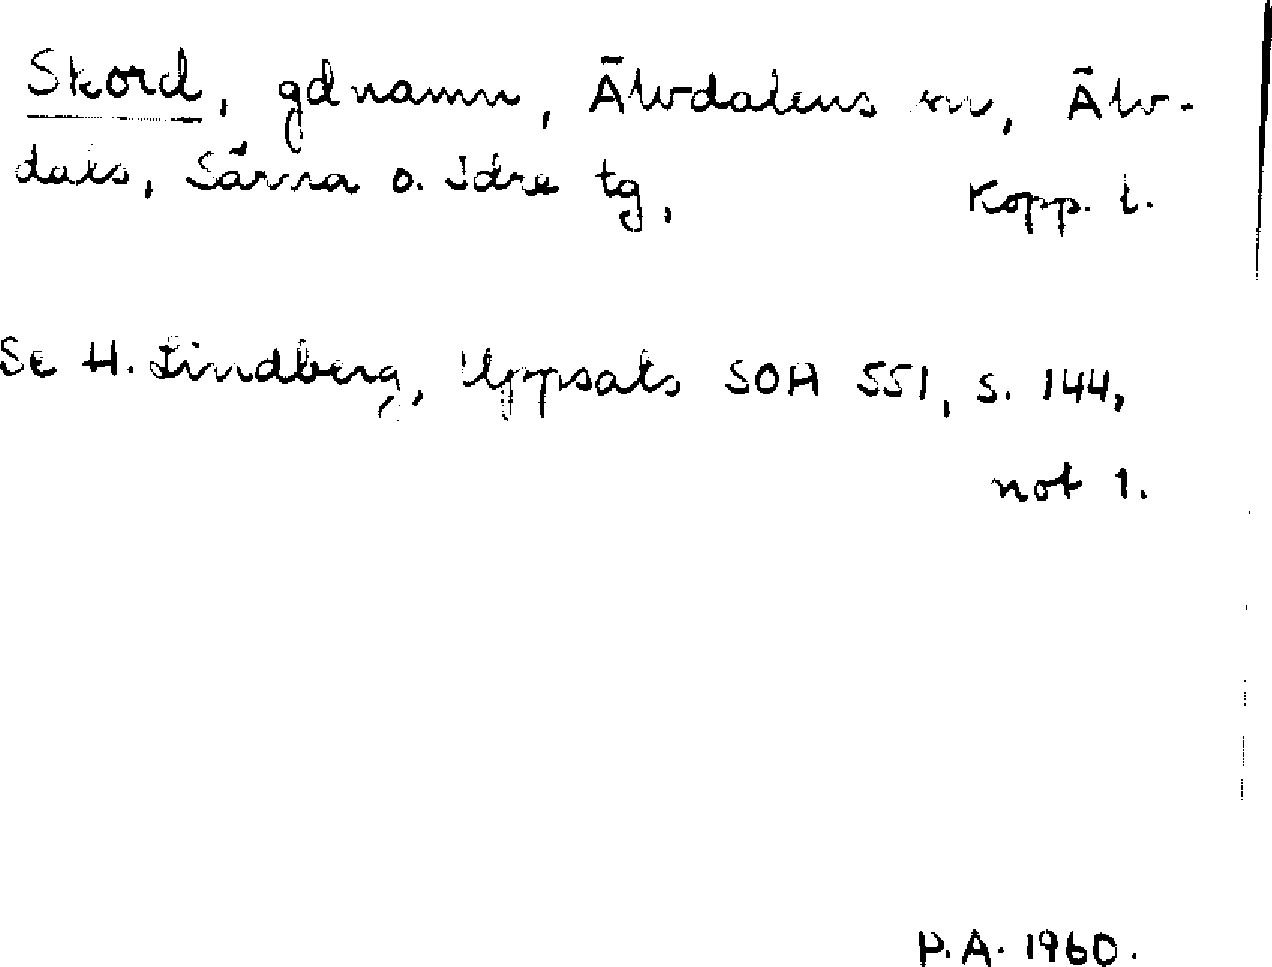 Skord, gdnamn, Älvdalens sn, Älv-
dals, Särna o. Idre tg, Kopp. l.
Se H. Lindberg, Uppsats SOA 551, s. 144,
not 1.
P.A. 1960.